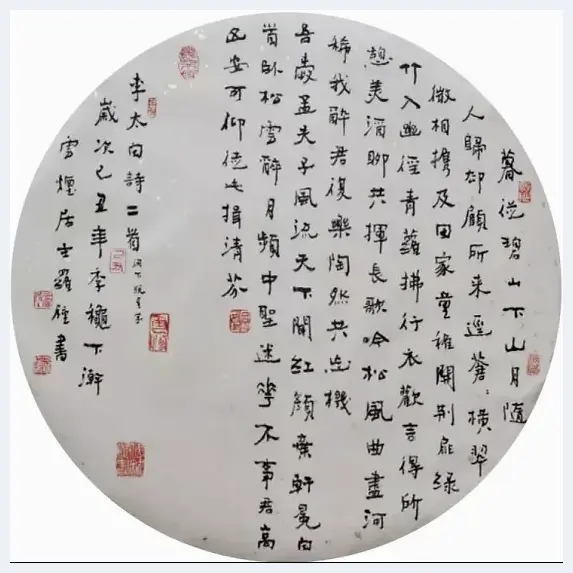 暮從碧山下山月隨
人歸却顧所來逕蒼〻橫翠
微相携及田家童稚開荆扉綠
竹入幽徑青蘿拂行衣歡言得所
憩美酒聊共揮長歌吟松風曲盡河
稀我醉君復樂陶然共忘機
吾愛孟夫子風流天下聞紅顏棄軒冕白
首卧松雪醉月頻中聖迷花不事君高
山安可仰從此揖清芬
李太白詩二首
歲次己丑年季穐下澣
雪煙居士羅書